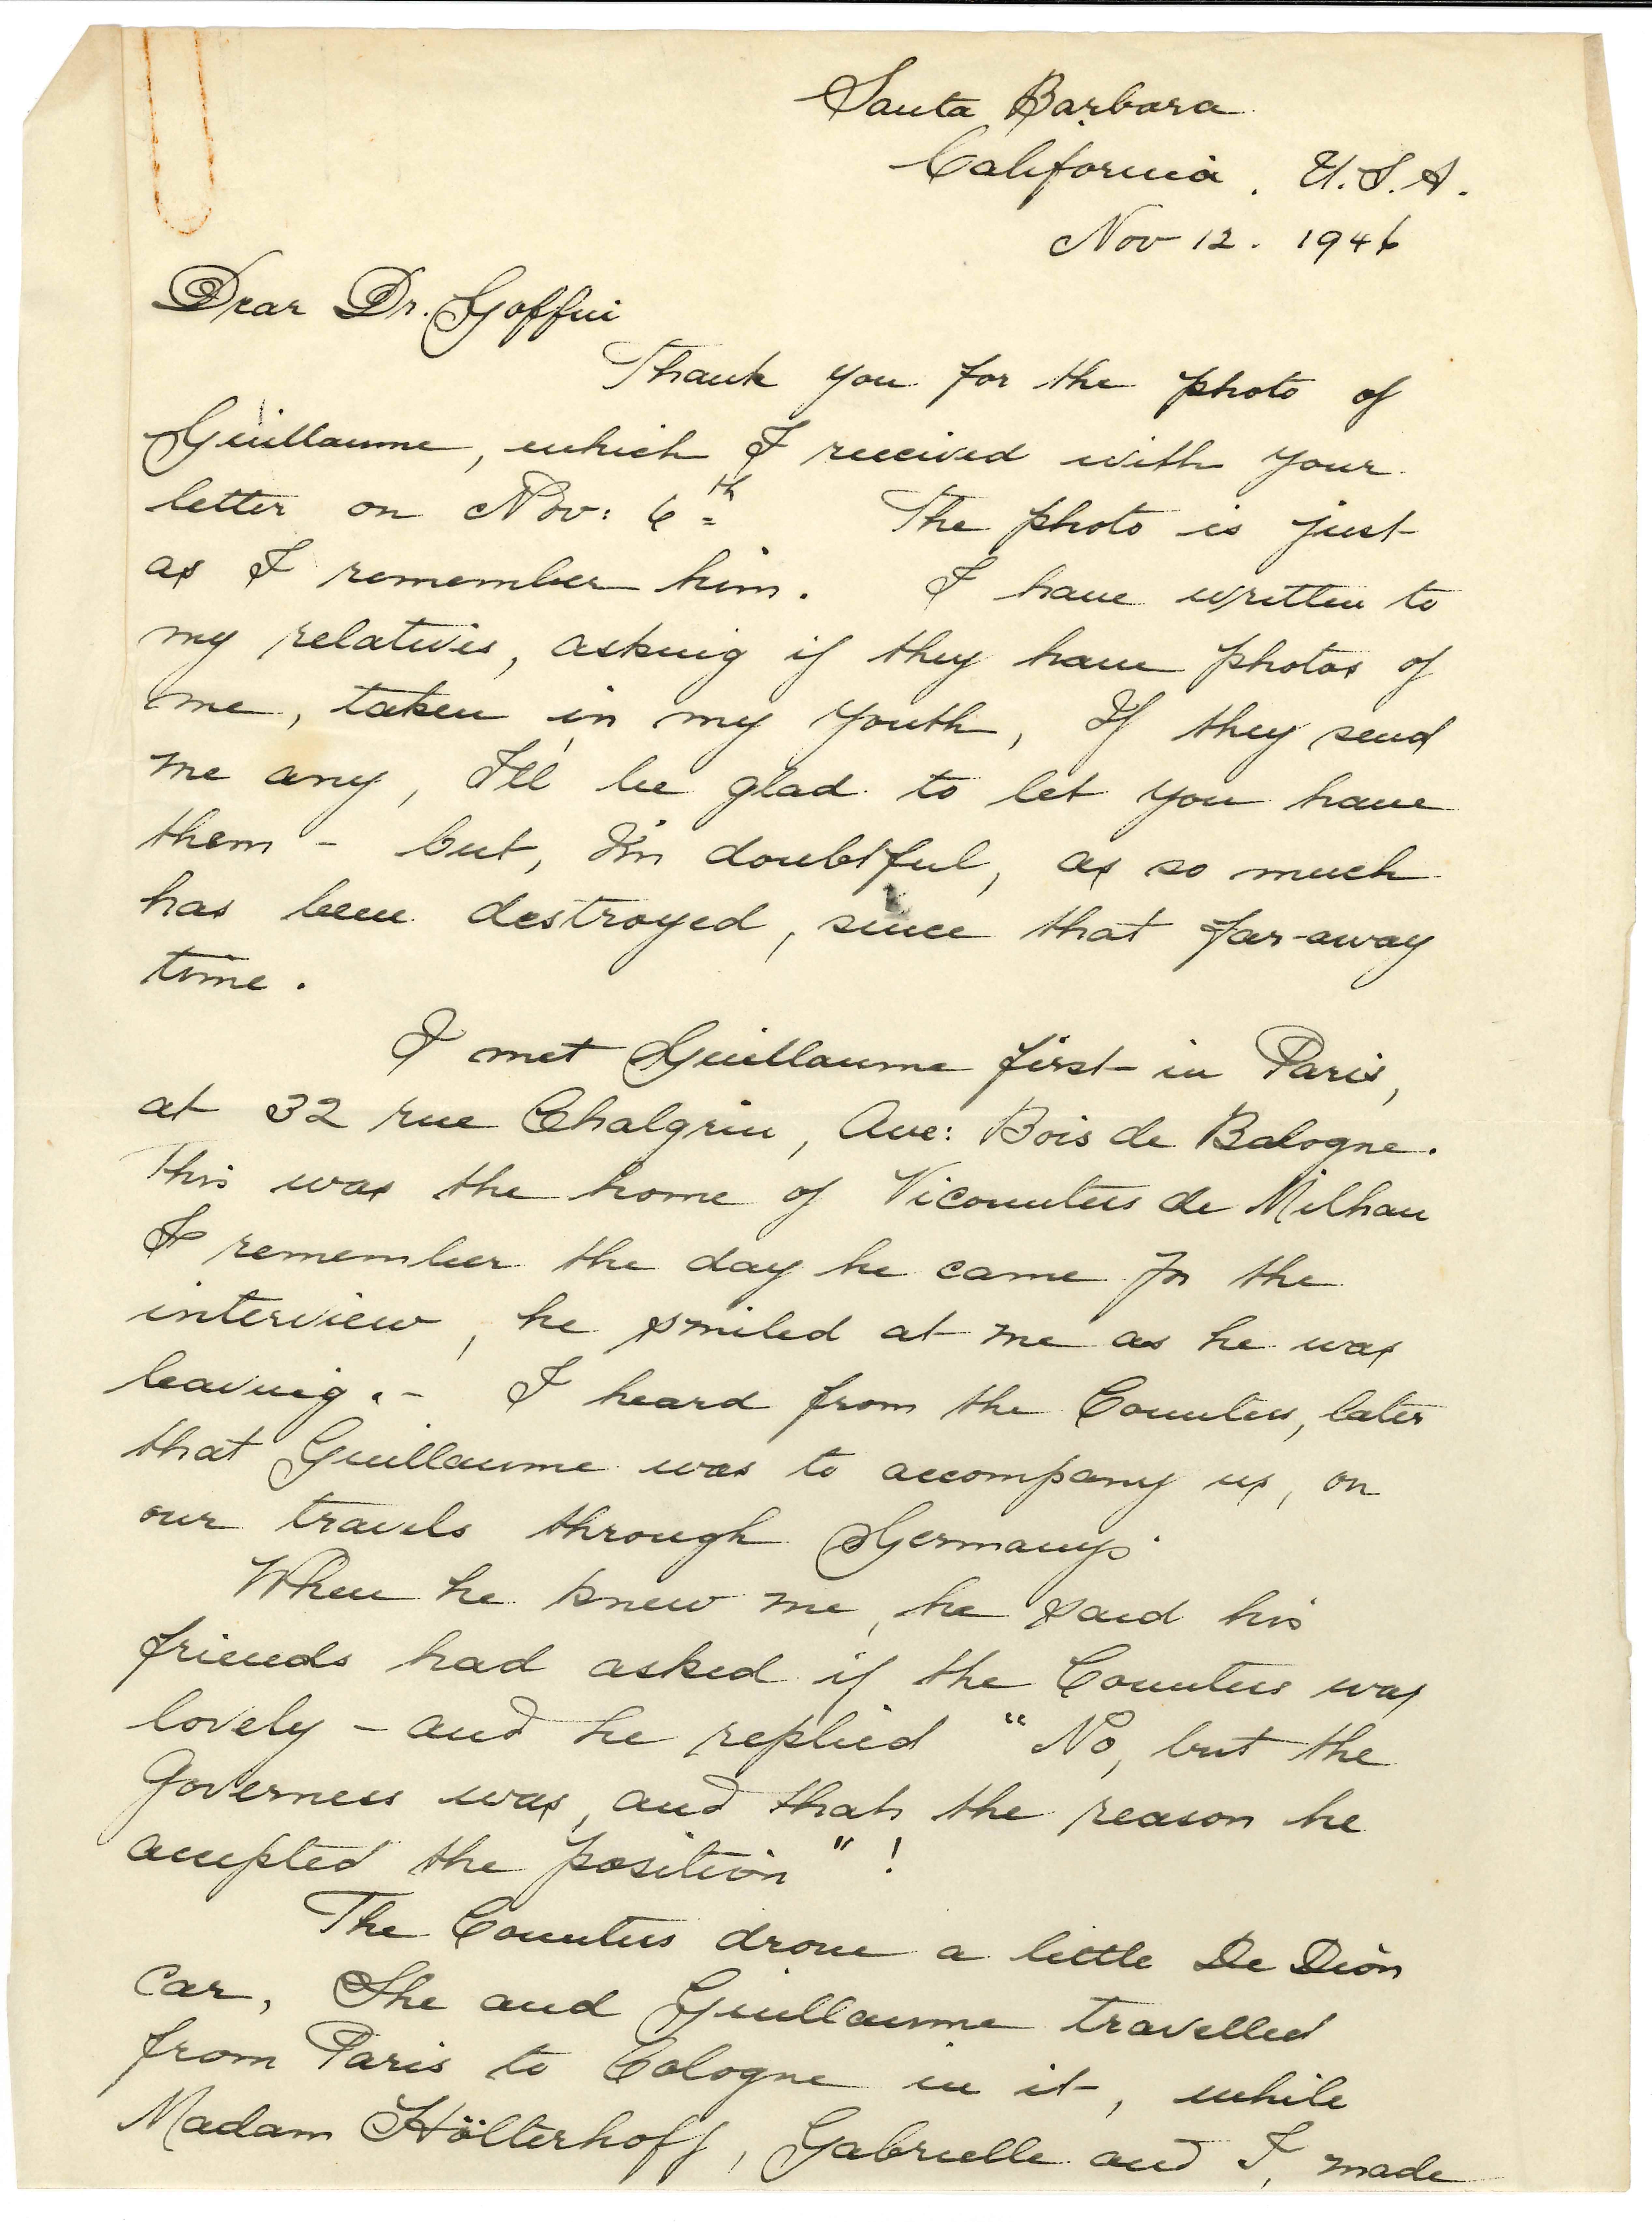 Santa Barbara
California. U.S.A.
Nov 12. 1946
Dear Dr. Goffin
Thank you for the photo of
Guillaume, which I received with your
letter on Nov: 6th The photo is just
as I remember him. I have written to
my relatives, asking if they have photos of
me, taken in my youth, If they send
me any, I'll be glad to let you have
them - but, I'm doubtful, as so much
has been destroyed, since that far-away
time.
I met Guillaume first in Paris,
at 32 rue Chalgrin, Ave: Bois de Balogne.
This was the home of Vicountess de Milhau
I remember the day he came for the
interview, he smiled at me as he was
leaving. - I heard from the Countess, later
that Guillaume was to accompany us, on
our travels through Germany.
When he knew me, he said his
friends had asked if the Countess was
lovely - and he replied "No, but the
Governess was, and thats the reason he
accepted the position"!
The Countess drove a little De Dion
car, She and Guillaume travelled
from Paris to Cologne in it, while
Madam Hölterhoff, Gabrielle and I, made